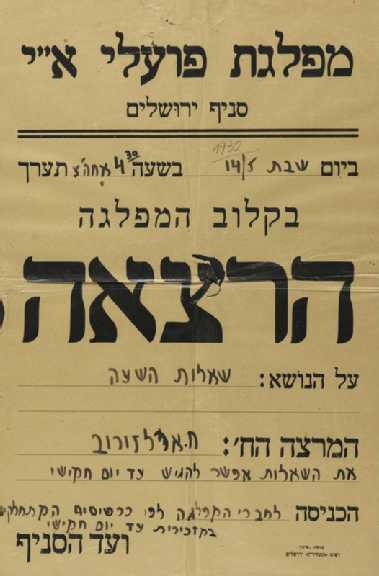 מפלגת פועלי א״י
סניף ירושלים
1930
ביום שבת 14/5 בשעה 4³⁰ אחה״צ תערך
בקלוב המפלגה
הרצאה
על הנושא: שאלות השעה
המרצה הח׳: ח. ארלוזורוב
את השאלות אפשר להגיש עד יום חמישי
הכניסה לחברי המפלגה לפי כרטיסים המתחלקים
במזכירות עד יום חמישי
ועד הסניף